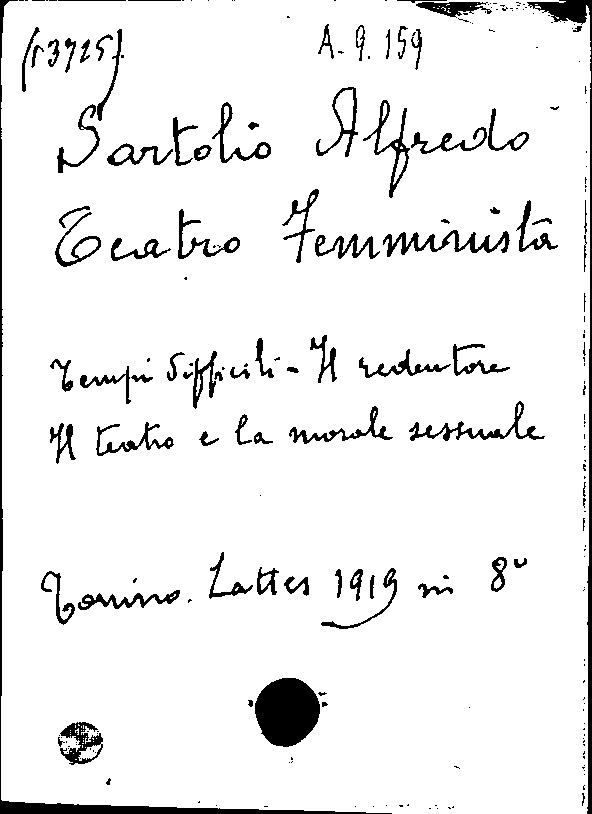 (13725)
A. 9. 159
Sartolio Alfredo
Teatro Femminista
Tempi difficili - Il redentore
Il teatro e la morale sessuale
Torino. Lattes 1919 in 8°